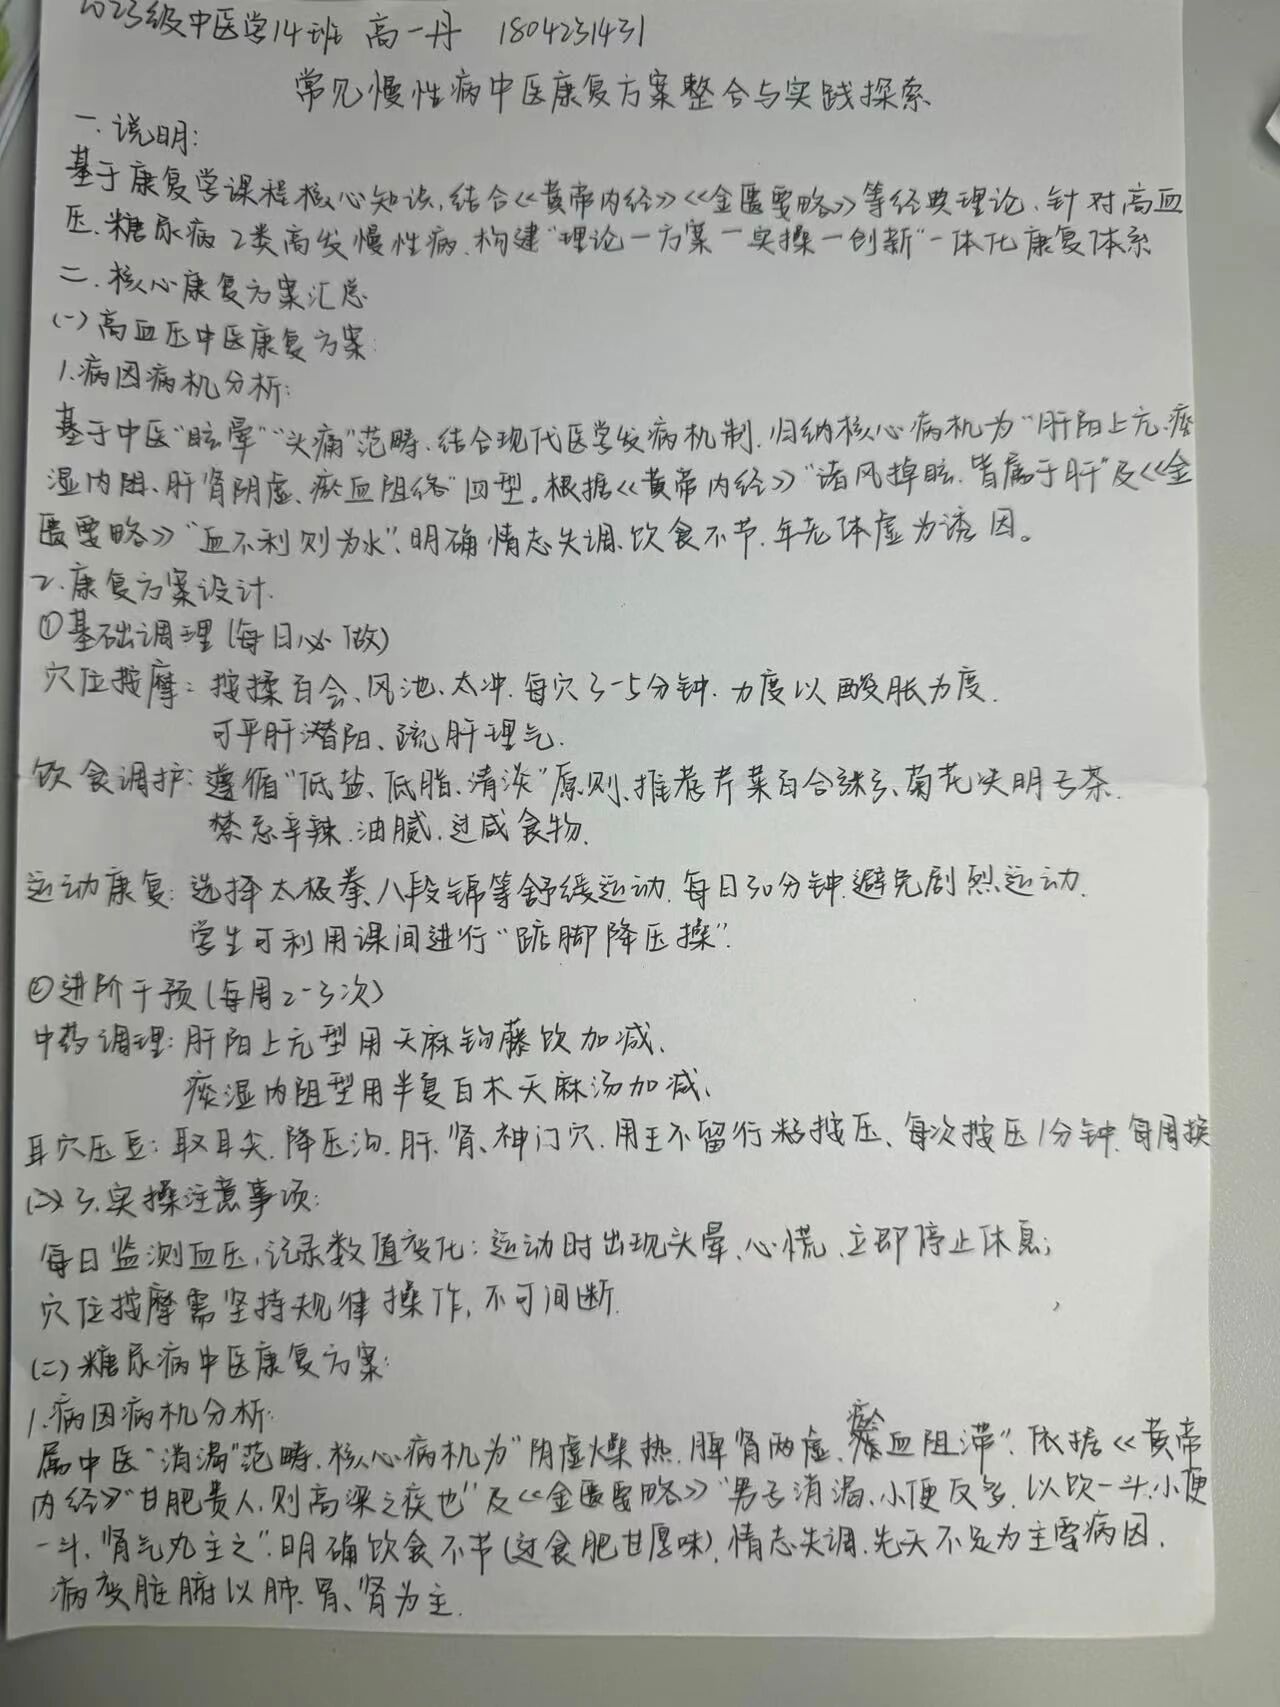 2023级中医学14班 高一丹 1804231431
常见慢性病中医康复方案整合与实践探索
一. 说明:
基于康复学课程核心知识,结合《黄帝内经》《金匮要略》等经典理论、针对高血
压、糖尿病2类高发慢性病,构建"理论一方案一实操一创新"一体化康复体系
二. 核心康复方案汇总
(一)高血压中医康复方案:
1.病因病机分析:
基于中医"眩晕""头痛"范畴,结合现代医学发病机制,归纳核心病机为"肝阳上亢,痰
湿内阻、肝肾阴虚、瘀血阻络"四型。根据《黄帝内经》"诸风掉眩,皆属于肝"及《金
匮要略》"血不利则为水",明确情志失调、饮食不节,年老体虚为诱因。
2.康复方案设计.
①基础调理(每日必做)
穴位按摩:按揉百会、风池、太冲,每穴3-5分钟,力度以酸胀为度.
可平肝潜阳、疏肝理气.
饮食调护:遵循"低盐、低脂、清淡"原则、推荐芹菜百合粥、菊花决明子茶.
禁忌辛辣.油腻.过咸食物.
运动康复:选择太极拳、八段锦等舒缓运动,每日30分钟,避免剧烈运动.
学生可利用课间进行"踮脚降压操".
②进阶干预(每周2-3次)
中药调理:肝阳上亢型用天麻钩藤饮加减、
痰湿内阻型用半夏白术天麻汤加减、
耳穴压豆:取耳尖.降压沟.肝.肾、神门穴,用王不留行籽按压、每次按压1分钟,每周换
3.实操注意事项:
每日监测血压,记录数值变化;运动时出现头晕、心慌、立即停止休息;
穴位按摩需坚持规律操作,不可间断.
(二)糖尿病中医康复方案:
1.病因病机分析:
属中医"消渴"范畴,核心病机为"阴虚燥热,脾肾两虚,瘀血阻滞".依据《黄帝
内经》"甘肥贵人,则高梁之疾也"及《金匮要略》"男子消渴、小便反多,以饮一斗、小便
一斗,肾气丸主之".明确饮食不节(过食肥甘厚味),情志失调.先天不足为主要病因.
病变脏腑以肺.胃、肾为主.